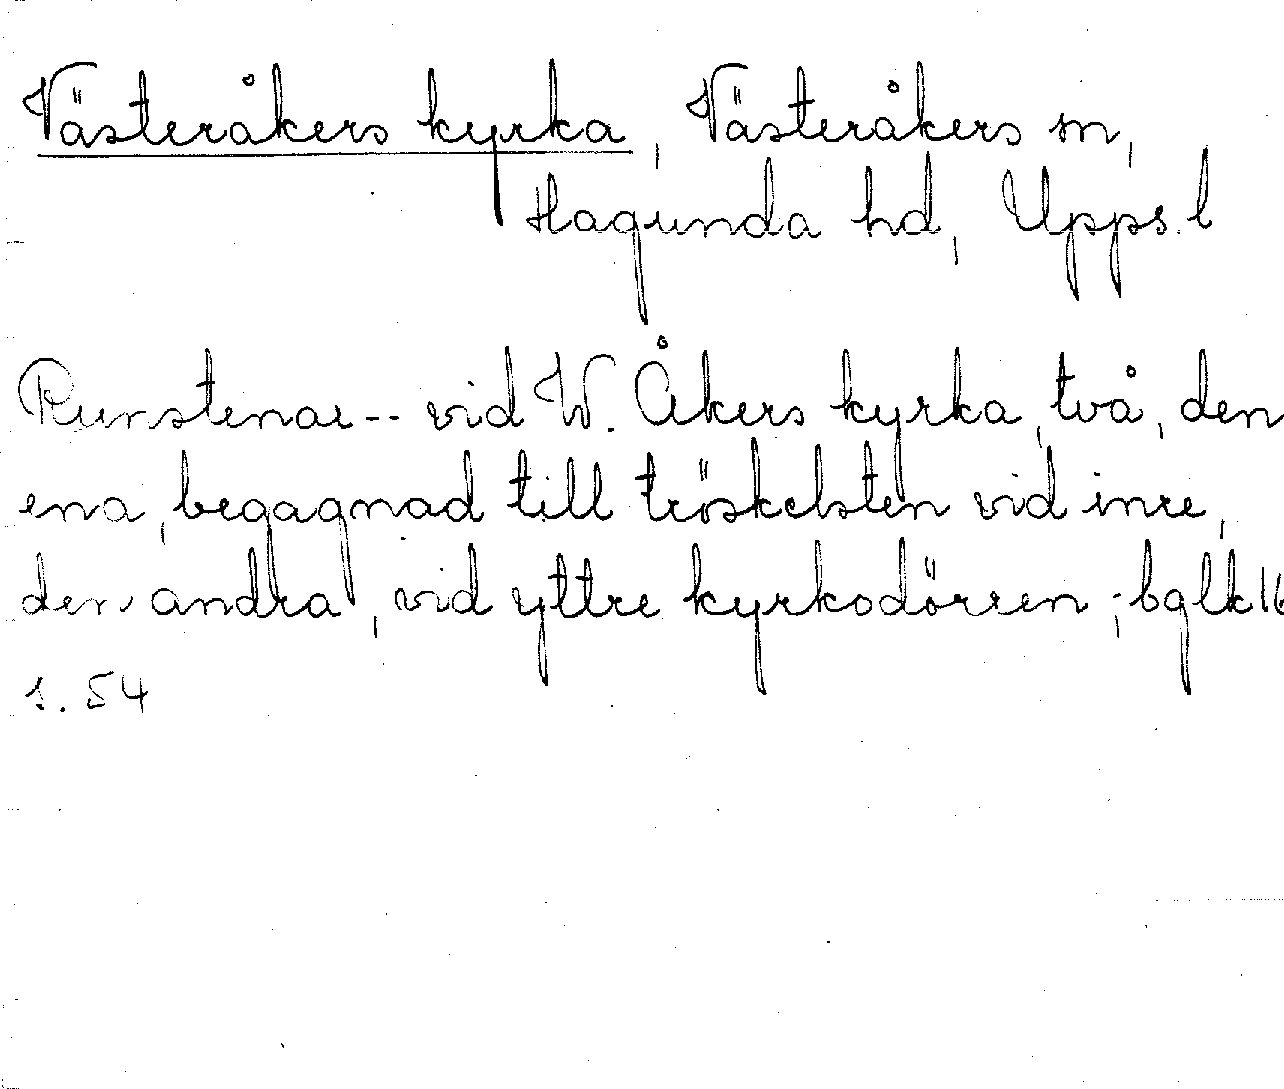 Västeråkers kyrka, Västeråkers sn,
Hagunda hd, Upps. l
Runstenar -- vid W. Åkers kyrka, två, den
ena, begagnad till tröskelsten vid inre,
den andra, vid yttre kyrkodörren; bglk 16
s. 54